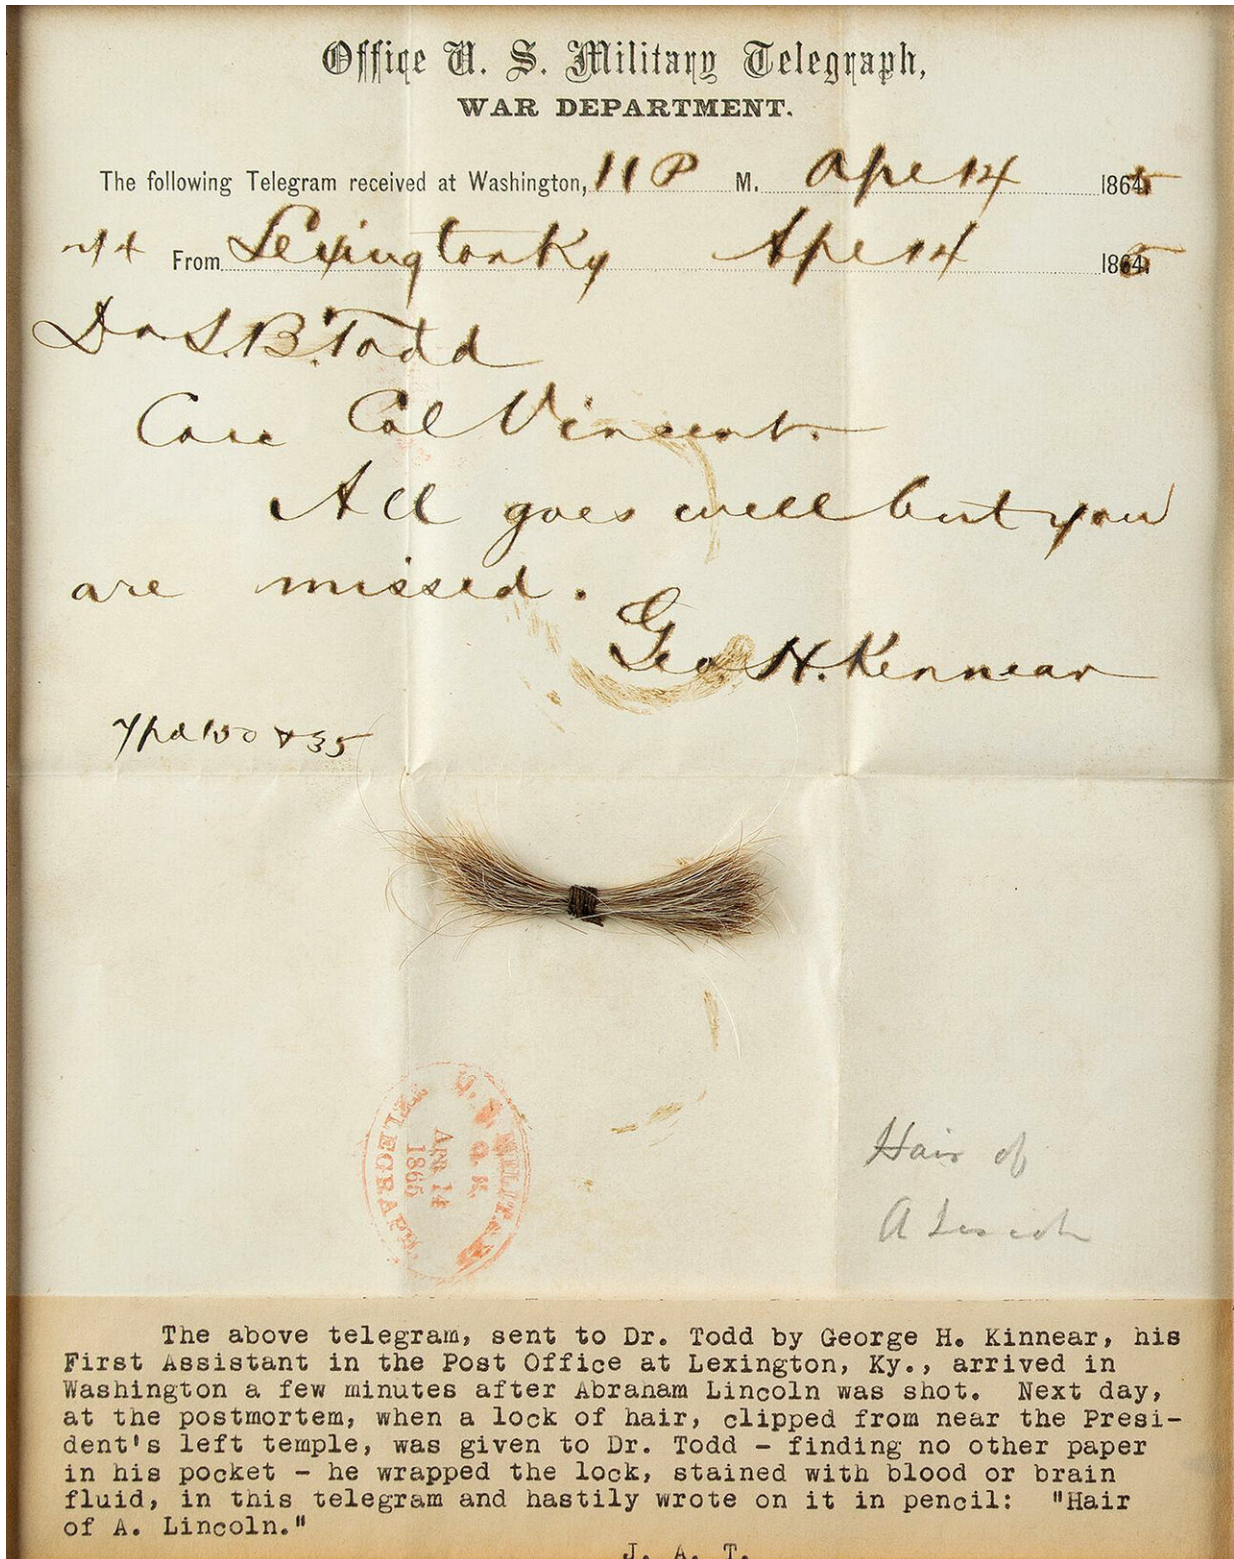 Office U. S. Military Telegraph,
WAR DEPARTMENT.
The following Telegram received at Washington, 11 P M. Apr 14 1865
From Lexington Ky Apr 14 1865
Dr L. B. Todd
Care Col Vincent.
All goes well but you
are missed.
Geo H. Kinnear
U. S. MILITARY
O. K.
APR 14
1865
TELEGRAPH.
Hair of
A Lincoln
The above telegram, sent to Dr. Todd by George H. Kinnear, his
First Assistant in the Post Office at Lexington, Ky., arrived in
Washington a few minutes after Abraham Lincoln was shot. Next day,
at the postmortem, when a lock of hair, clipped from near the Presi-
dent's left temple, was given to Dr. Todd - finding no other paper
in his pocket - he wrapped the lock, stained with blood or brain
fluid, in this telegram and hastily wrote on it in pencil: "Hair
of A. Lincoln."
J. A. T.